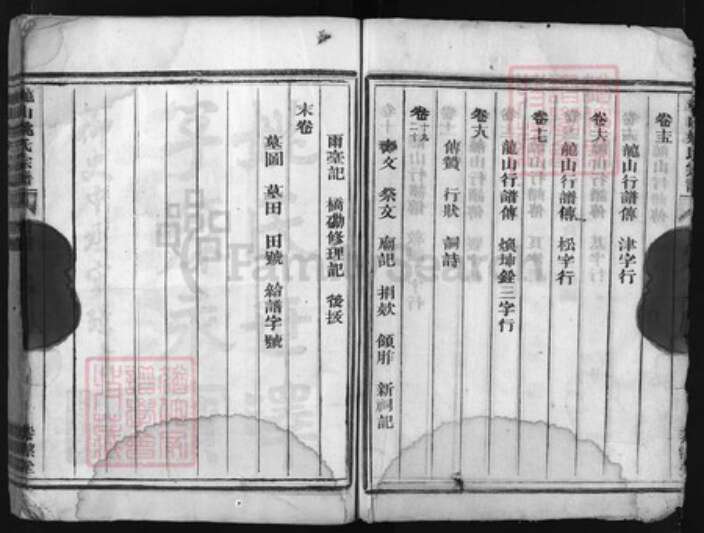 卷十五
龍山行譜傳 津字行
卷十六
龍山行譜傳 松字行
卷十七
龍山行譜傳 煥坤銓三字行
卷十八
傳贊 行狀 詞詩
卷十九二十
文 祭文 廟記 捐欵 領胙 新祠記
雨臺記 橋磡修理記 後援
末卷
墓圖 墓田 田號 給譜字號